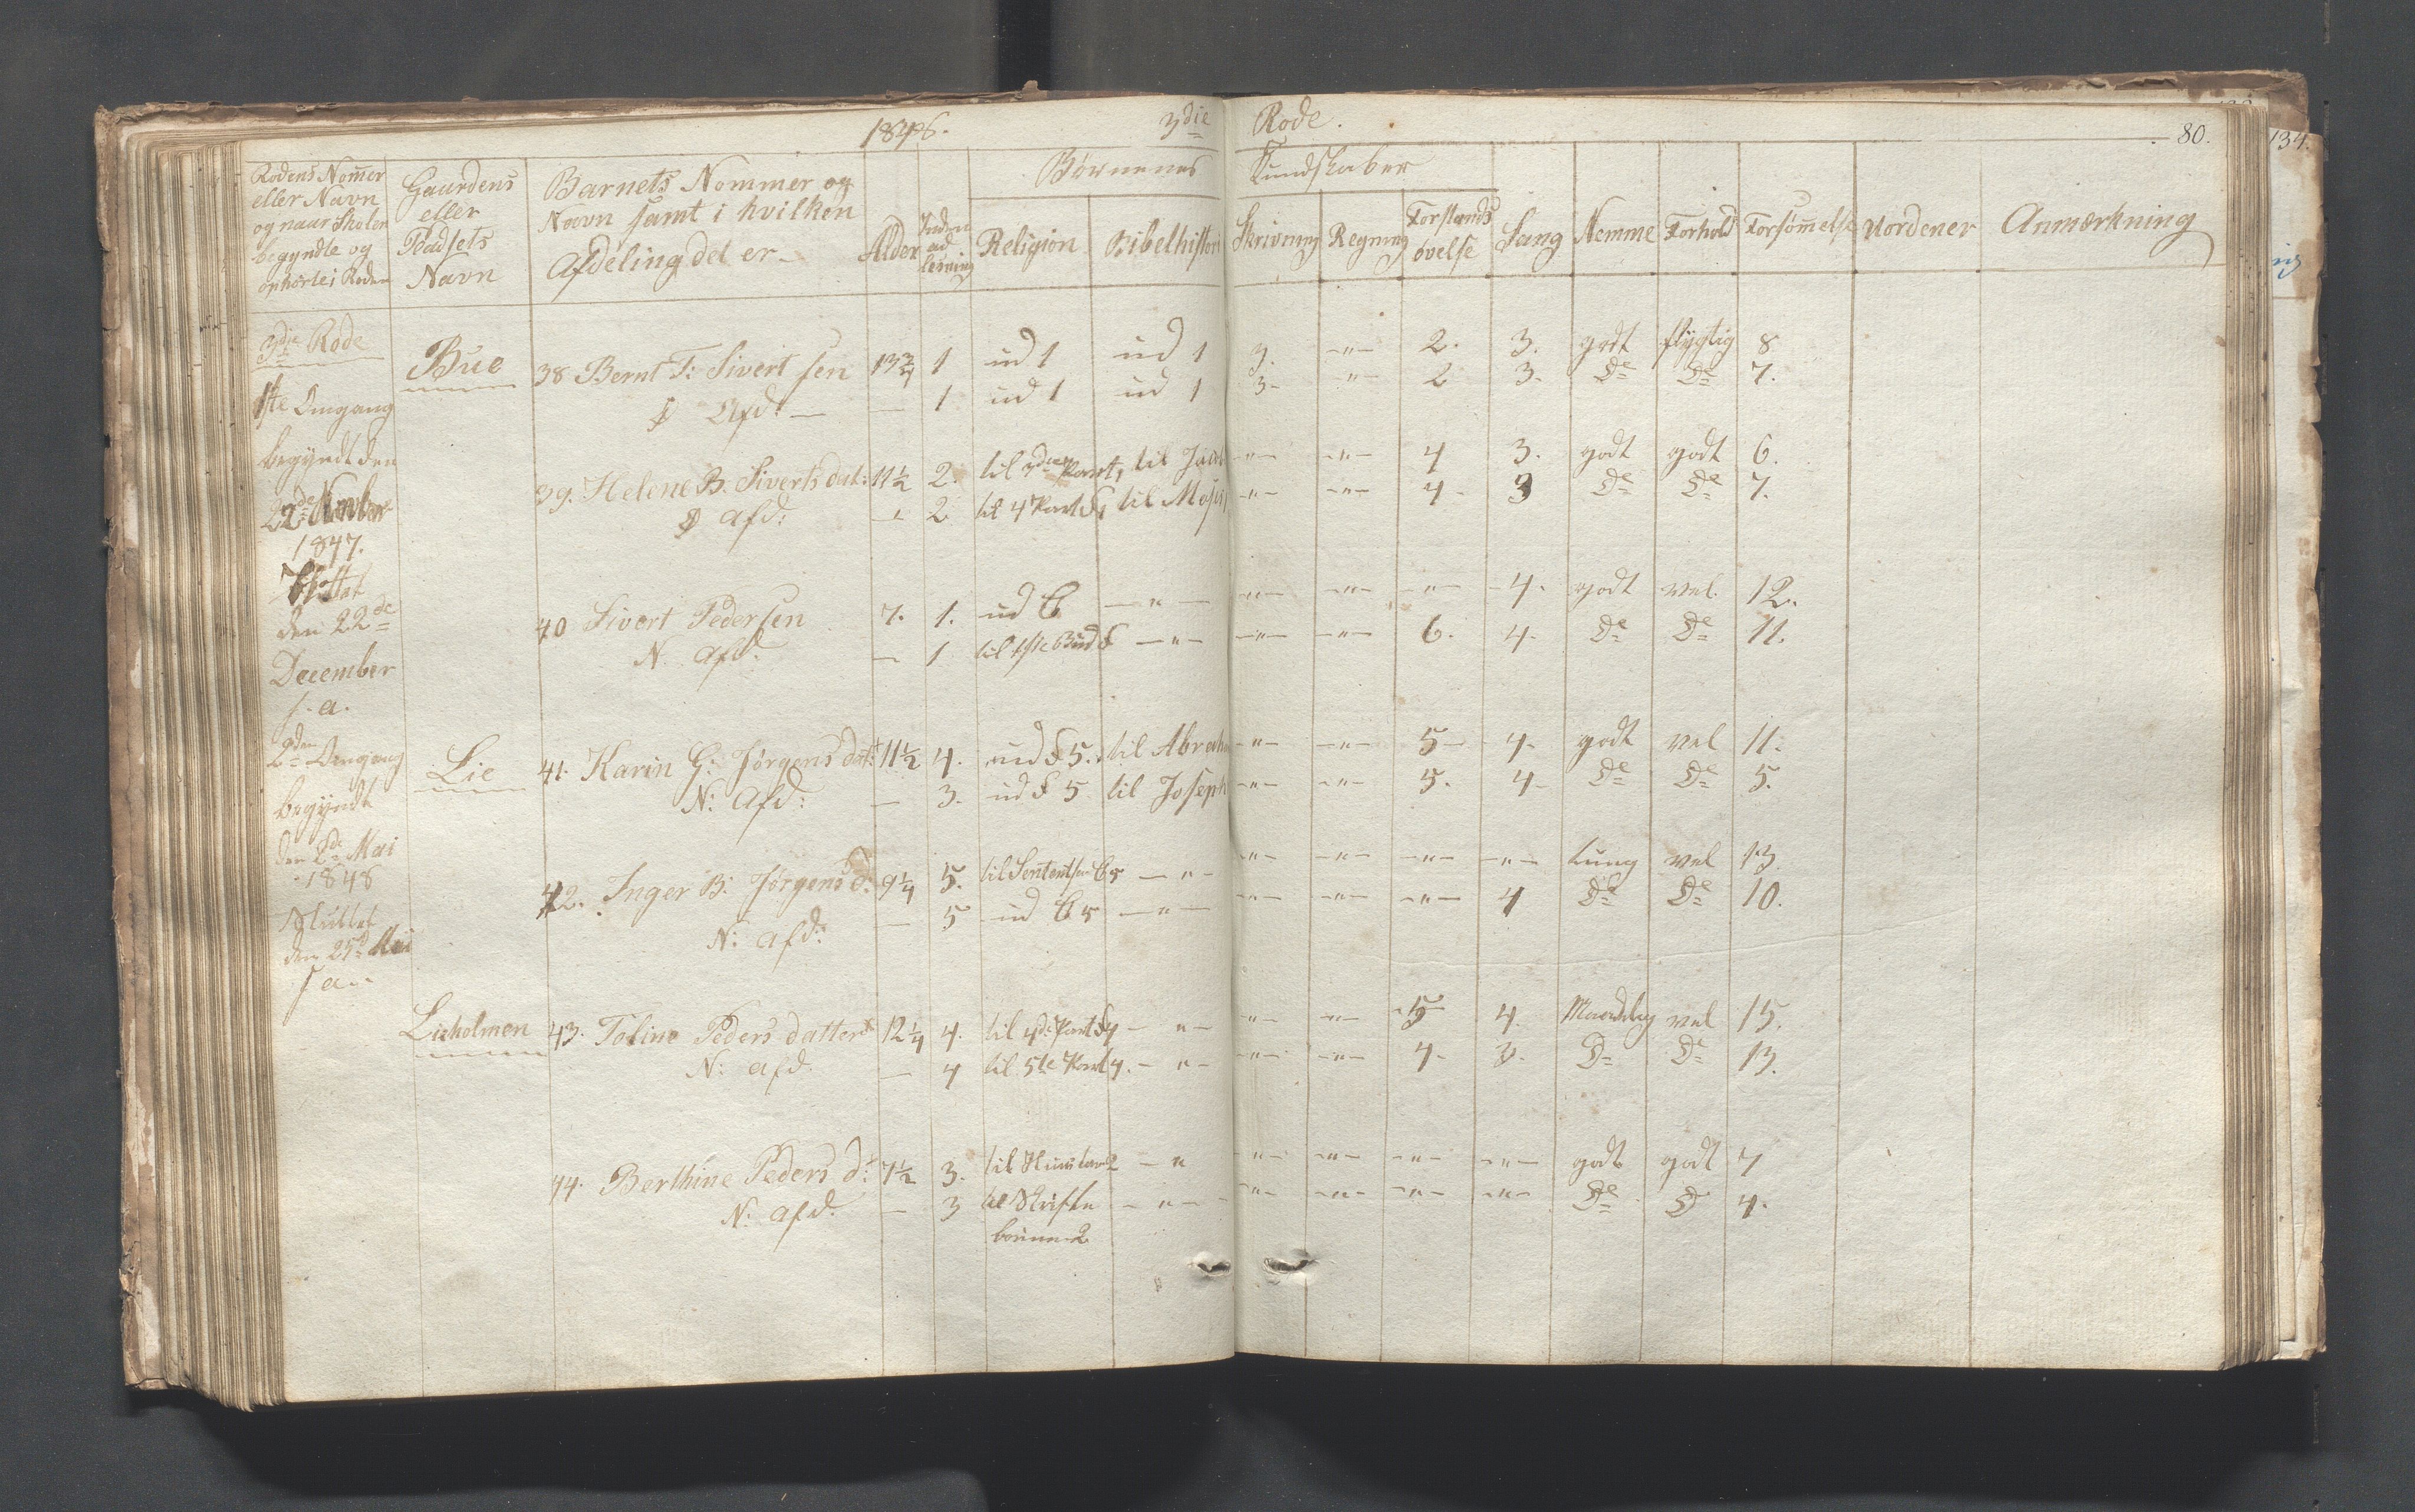 3die Rode.
80.
134.
Rodens Nom̄er eller Navn og naar Skolen begyndte og ophørte i Roden
Gaardens eller Pladsets Navn
Barnets Nommer og Navn samt i hvilken Afdeling det er
Alder
Inden ad læsning
Børnenes Kundskaber
Religion
Bibelhistori
Skrivning
Regning
Forstands øvelse
Sang
Nemme
Forhold
Forsøm̄else
Uordener
Anmærkning
3die Rode
1ste Omgang
begyndt den
1847.
Sluttet
den 22de
December
s. a.
2den Omgang
begyndt
den 2de Mai
1848
Sluttet
den 25de Mai
s a.
Bue 38 Bernt T: Sivertsen 13 3/4 1 ud 1 ud 1 3. -"- 2. 3. godt flygtig 8
Afd: — — 1 ud 1 ud 1 3- -"- 2 3. De De 7.
39. Helene B. Siverts dat: 11 1/2 2. til Part, til Jacob -"- -"- 4 3. godt godt 6.
Afd: — 2 til 4 Part til Moses -"- -"- 4- 3 De De 7.
40 Sivert Pedersen 7. 1. ud -"- -"- -"- -"- 4. godt vel. 12.
N. Afd: — 1 til 1ste Bud -"- -"- -"- 6. 4. De De 11.
Lie 41. Karin G: Jørgens dat: 11 1/2 4. ud 5. til Abraha -"- -"- 5- 4. godt vel 11.
N: Afd: — 3. ud 5 til Joseph -"- -"- 5. 4- De De 5.
42. Inger B: Jørgens d: 9 1/4 5. til 5 -"- -"- -"- -"- -"- tung vel 13.
N: Afd: — 5 ud 5 -"- -"- -"- -"- 4 De De 10.
Lieholmen 43. Toline Peders datter 12 1/4 4. til 4de Part 4 -"- -"- -"- 5 4. vel 15.
N: Afd. — 4 til 5te Part 4. -"- -"- -"- 4- 3. De De 13.
44. Berthine Peders d: 7 1/2 3. til 2 -"- -"- -"- -"- -"- godt godt 7
N: Afd: — 3 til Skrifte -"- -"- -"- -"- -"- De D 4.